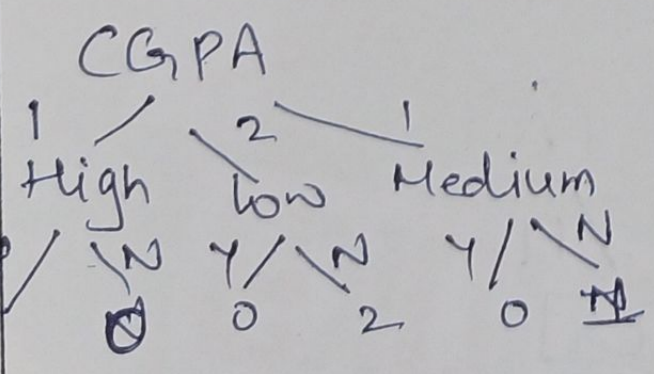 CGPA
1 2 1
High Low Medium
N Y N Y N
0 2 0